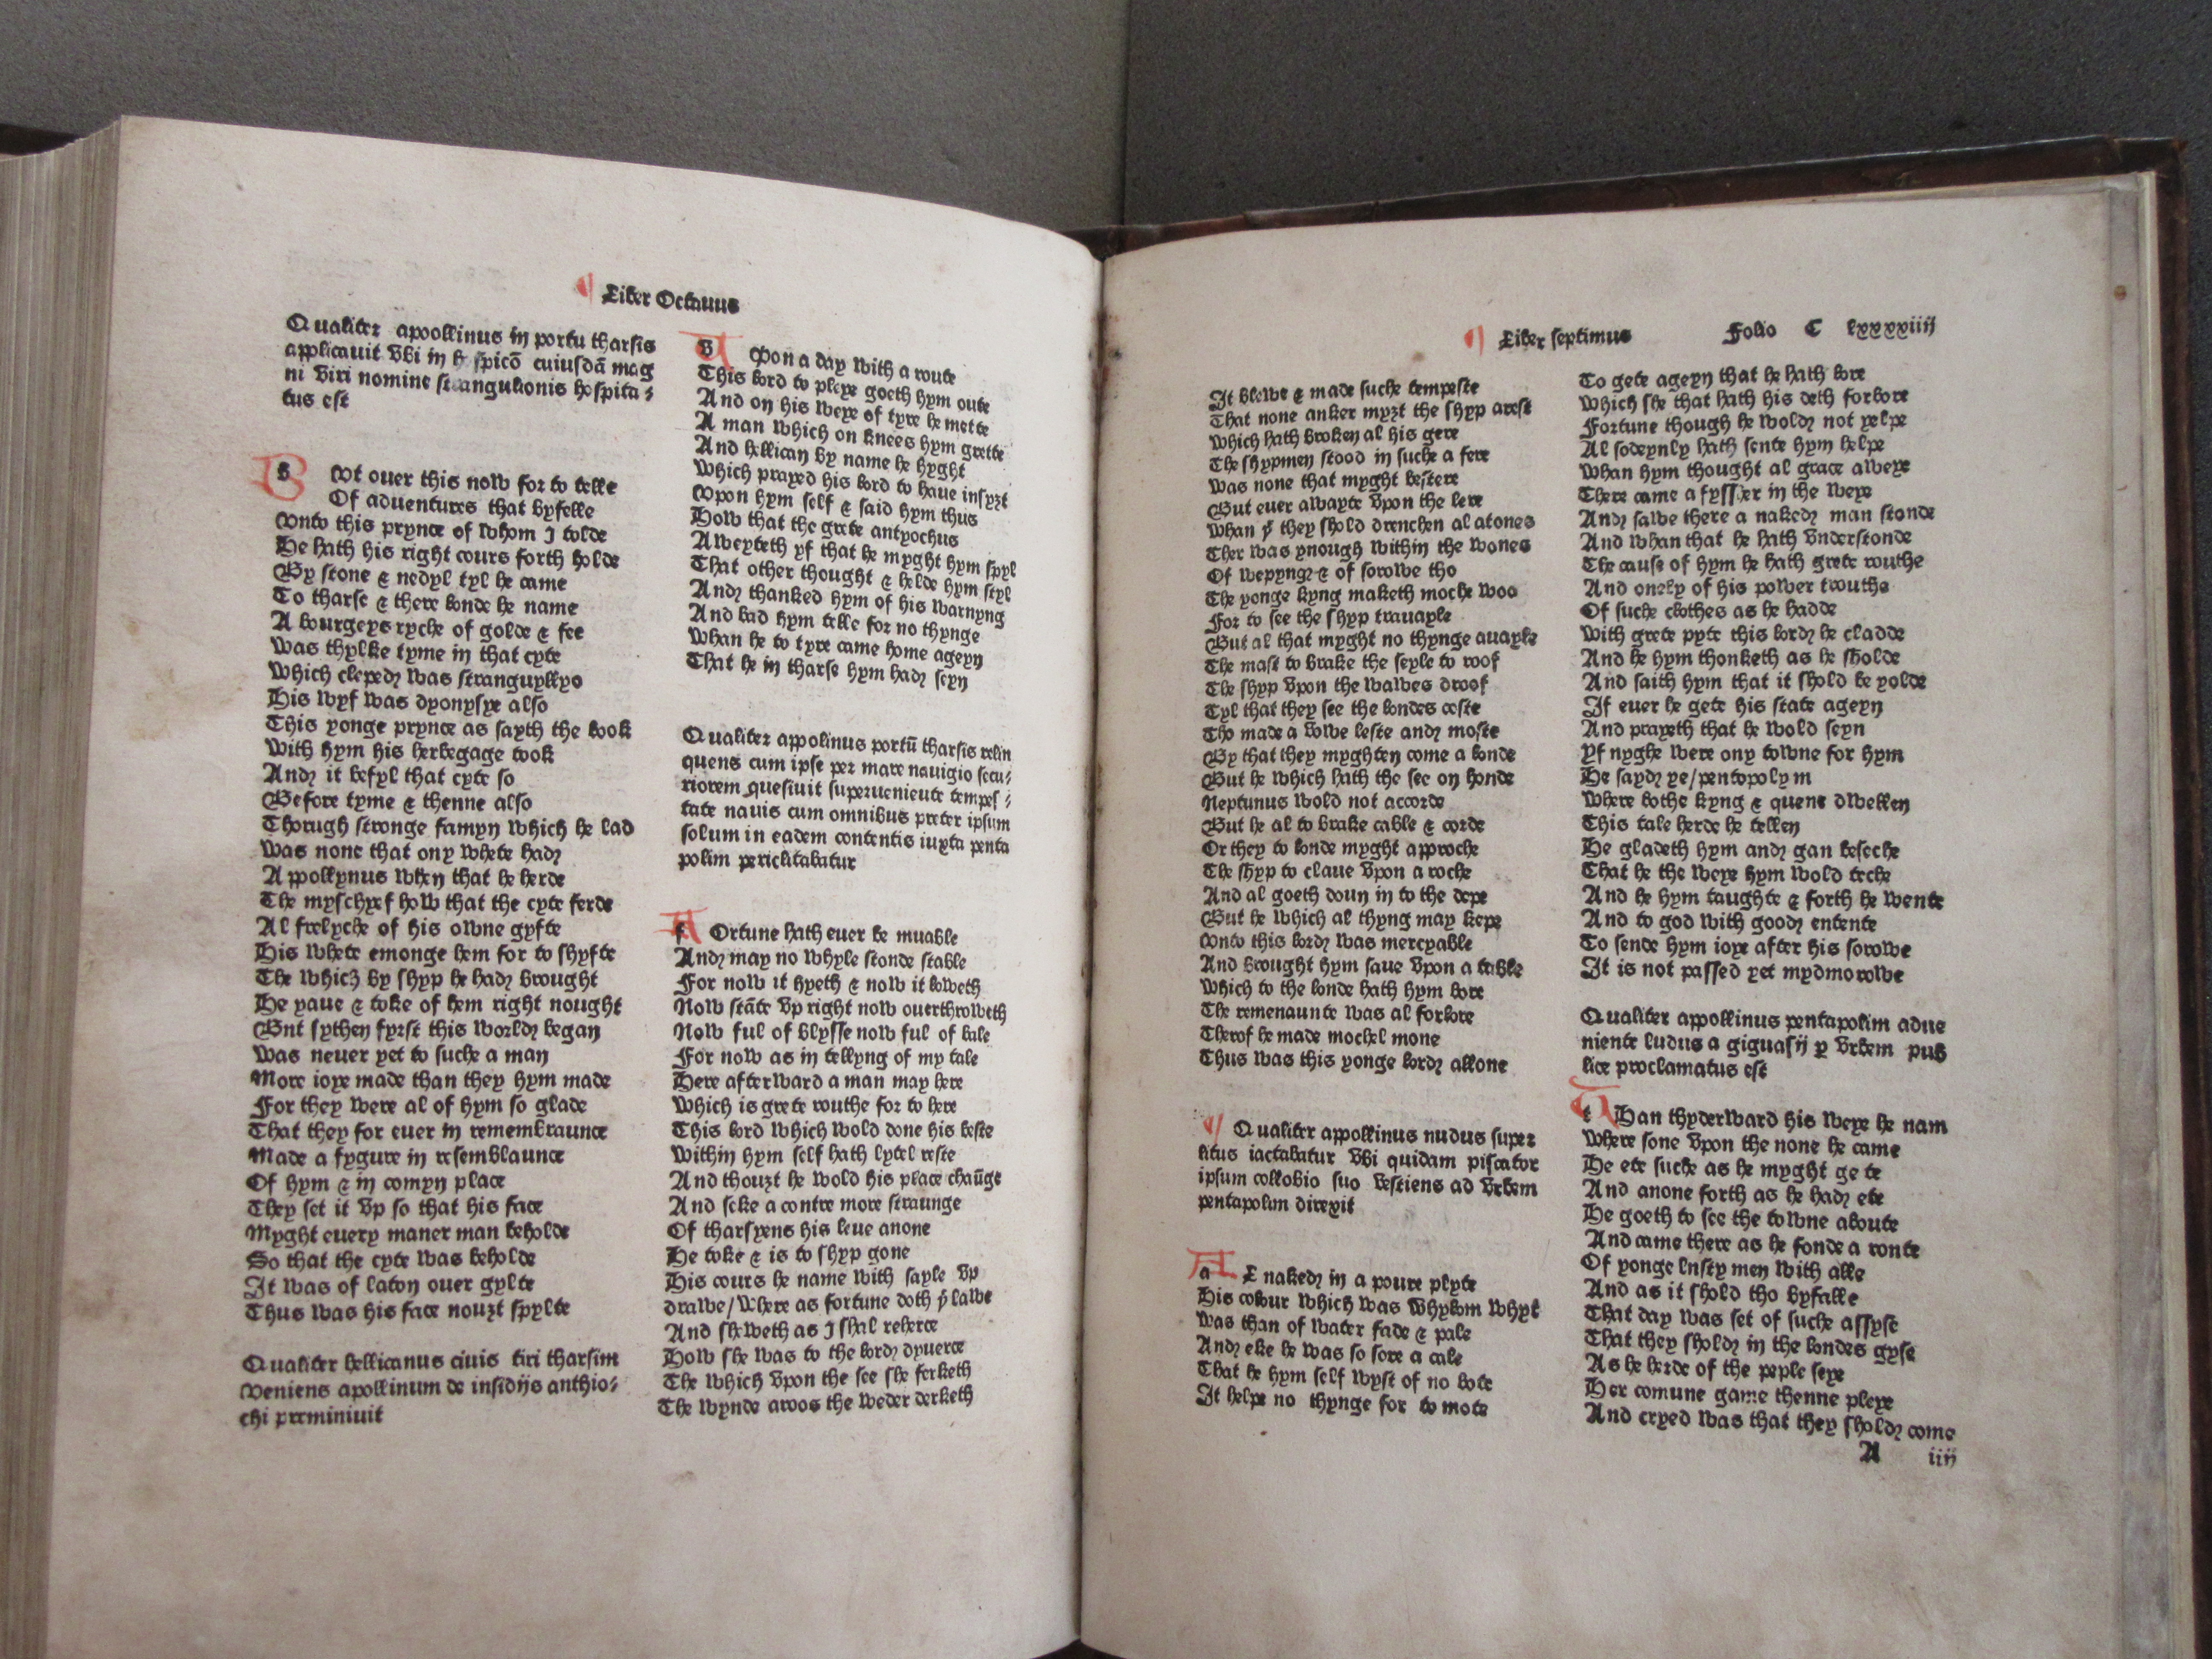 Liber Octauus
Qualiter apollinus in portu tharsis
applicauit vbi in h spicō cuiusdā mag
ni viri nomine strangulionis hospita⸗
tus est
b Vt ouer this now for to telle
Of aduentures that byfelle
Vnto this prynce of whom I tolde
He hath his right cours forth holde
By stone & nedyl tyl he came
To tharse & there londe he name
A bourgeys ryche of golde & fee
Was thylke tyme in that cyte
Which cleped was stranguyllyo
His wyf was dyonysye also
This yonge prynce as sayth the book
With hym his herbegage took
And it befyl that cyte so
Before tyme & thenne also
Thorugh stronge famyn which he lad
Was none that ony whete had
Appollynus when that he herde
The myschyef how that the cyte ferde
Al freelyche of his owne gyfte
His whete emonge hem for to shyfte
The which by shyp he had brought
He yaue & toke of hem right nought
But sythen fyrst this world began
Was neuer yet to suche a man
More ioye made than they hym made
For they were al of hym so glade
That they for euer in remembraunce
Made a fygure in resemblaunce
Of hym & in comyn place
They set it vp so that his face
Myght euery maner man beholde
So that the cyte was beholde
It was of laton ouer gylte
Thus was his face nouȝt spylte
Qualiter hellicanus ciuis tiri tharsim
veniens apollinum de insidijs anthio⸗
chi preminiuit
v Vpon a day with a route
This lord to pleye goeth hym oute
And on his weye of tyre he mette
A man which on knees hym grette
And hellican by name he hyght
Which prayed his lord to haue insyȝt
Vpon hym self & said hym thus
How that the grete antyochus
Aweyteth yf that he myght hym spyl
That other thought & helde hym styl
And thanked hym of his warnyng
And bad hym telle for no thynge
Whan he to tyre came home ageyn
That he in tharse hym had seyn
Qualiter appolinus portū tharsis relin
quens cum ipse per mare nauigio secu⸗
riorem quesiuit superueniente tempes⸗
tate nauis cum omnibus preter ipsum
solum in eadem contentis iuxta penta
polim periclitabatur
f Ortune hath euer be muable
And may no whyle stonde stable
For now it hyeth & now it loweth
Now stāte vp right now ouerthroweth
Now ful of blysse now ful of bale
For now as in tellyng of my tale
Here afterward a man may here
Which is grete routhe for to here
This lord which wold done his beste
Within hym self hath lytel reste
And thouȝt he wold his place chaūge
And seke a contre more straunge
Of tharsyens his leue anone
He toke & is to shyp gone
His cours he name with sayle vp
drawe/where as fortune doth yͤ lawe
And sheweth as I shal reherce
How she was to the lord dyuerce
The which vpon the see she ferketh
The wynde aroos the weder derketh
Liber septimus Folio C lxxxxiiij
It blewe & made suche tempeste
That none anker myȝt the shyp arest
Which hath broken al his gere
The shypmen stood in suche a fere
Was none that myght bestere
But euer awayte vpon the lere
Whan yͭ they shold drenchen al atones
Ther was ynough within the wones
Of wepyng & of sorowe tho
The yonge kyng maketh moche woo
For to see the shyp trauayle
But al that myght no thynge auayle
The mast to brake the seyle to roof
The shyp vpon the wawes droof
Tyl that they see the londes coste
Tho made a vowe leste and moste
By that they myghten come a londe
But he which hath the see on honde
Neptunus wold not accorde
But he al to brake cable & corde
Or they to londe myght approche
The shyp to claue vpon a roche
And al goeth doun in to the depe
But he which al thyng may kepe
Vnto this lord was mercyable
And brought hym saue vpon a table
Which to the londe hath hym bore
The remenaunte was al forlore
Therof he made mochel mone
Thus was this yonge lord allone
Qualiter appollinus nudus super
litus iactabatur vbi quidam piscator
ipsum collobio suo vestiens ad vrbem
pentapolim direxit
a L naked in a poure plyte
His colour which was whylom whyt
Was than of water fade & pale
And eke he was so sore a cale
That he hym self wyst of no bote
It helpe no thynge for to mote
To gete ageyn that he hath lore
Which she that hath his deth forbore
Fortune though he wold not yelpe
Al sodeynly hath sente hym helpe
Whan hym thought al grace aweye
There came a fyssher in the weye
And sawe there a naked man stonde
And whan that he hath vnderstonde
The cause of hym he hath grete routhe
And onely of his power trouthe
Of suche clothes as he hadde
With grete pyte this lord he cladde
And he hym thonketh as he sholde
And saith hym that it shold be yolde
If euer he gete his state ageyn
And prayeth that he wold seyn
Yf nyghe were ony towne for hym
He sayd ye/pentopolym
Where bothe kyng & quene dwellen
This tale herde he tellen
He gladeth hym and gan beseche
That he the weye hym wold teche
And he hym taughte & forth he wente
And to god with good entente
To sende hym ioye after his sorowe
It is not passed yet mydmorowe
Qualiter appollinus pentapolim adue
niente ludus a giguasij p vrbem pub
lice proclamatus est
t Han thyderward his weye he nam
Where sone vpon the none he came
He ete suche as he myght gete
And anone forth as he had ete
He goeth to see the towne aboute
And came there as he fonde a ronte
Of yonge lnsty men with alle
And as it shold tho byfalle
That day was set of suche assyse
That they shold in the londes gyse
As he herde of the peple seye
Her comune game thenne pleye
And cryed was that they shold come
A iiij